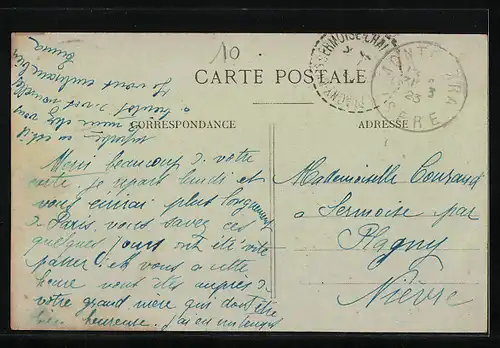 10
CARTE POSTALE
CORRESPONDANCE
ADRESSE
Merci beaucoup de votre
carte. je repars lundi et
vous écrirai plus longuement
de Paris. vous savez ces
quelques jours ont été vite
passer et vous a cette
heure vous êtes auprès de
votre grand mère qui doit être
bien heureuse. j'ai eu un temps
chez vous
à bientot de vos nouvelles
Je vous embrasse bien
Mademoiselle
a Sermoise par
Plagny
Nièvre